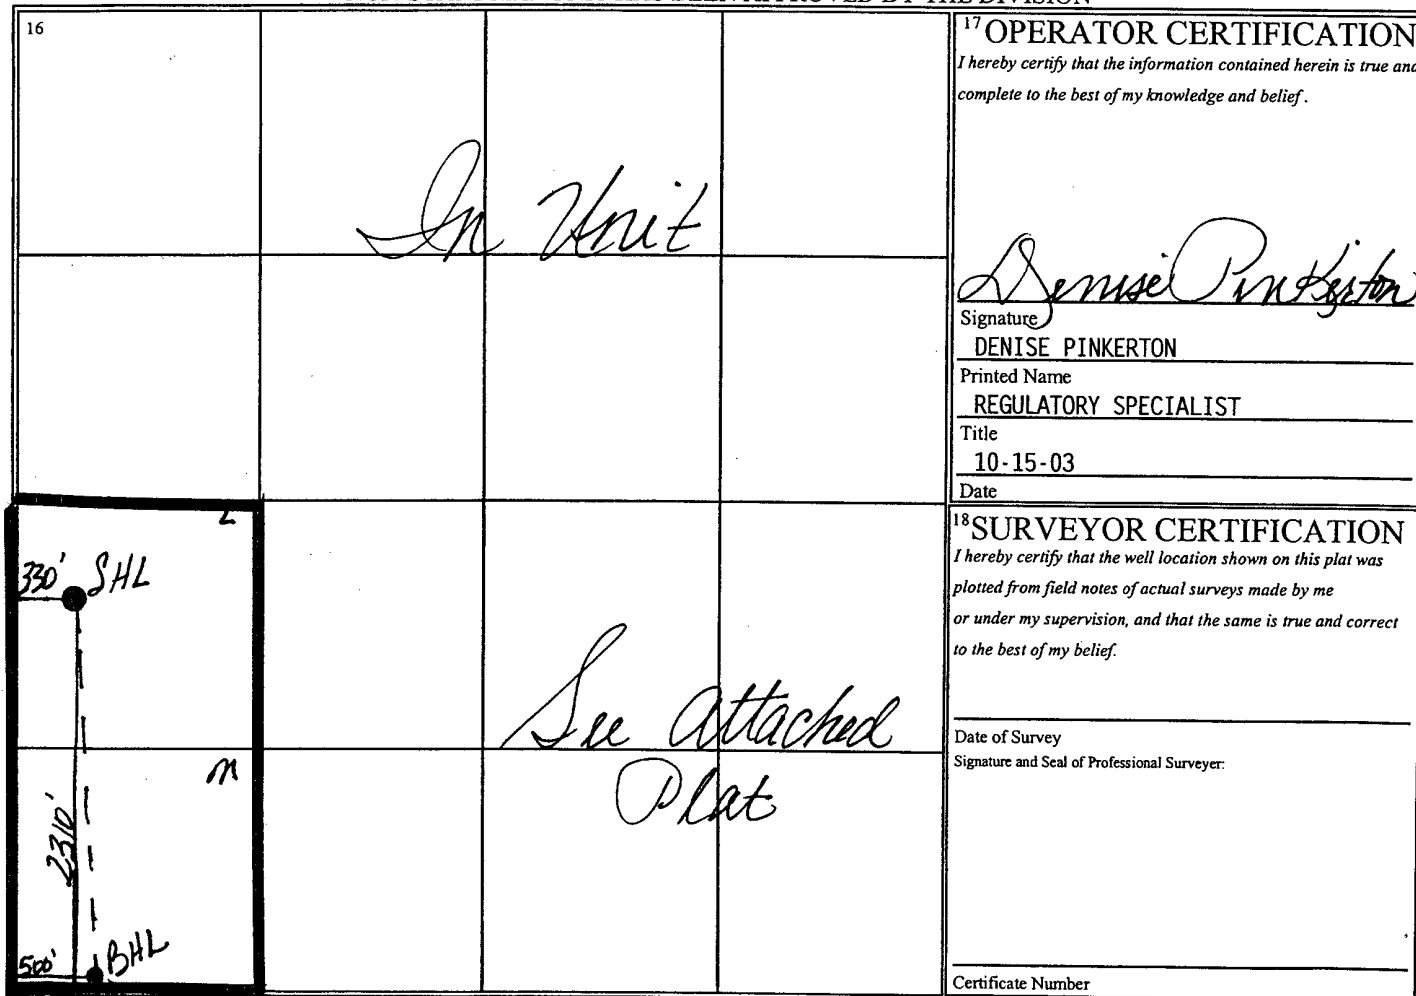 16
In Unit
L
330' SHL
See attached
M
Plat
2310'
500' BHL
17 OPERATOR CERTIFICATION
I hereby certify that the information contained herein is true and
complete to the best of my knowledge and belief.
Denise Pinkerton
Signature
DENISE PINKERTON
Printed Name
REGULATORY SPECIALIST
Title
10-15-03
Date
18 SURVEYOR CERTIFICATION
I hereby certify that the well location shown on this plat was
plotted from field notes of actual surveys made by me
or under my supervision, and that the same is true and correct
to the best of my belief.
Date of Survey
Signature and Seal of Professional Surveyer:
Certificate Number